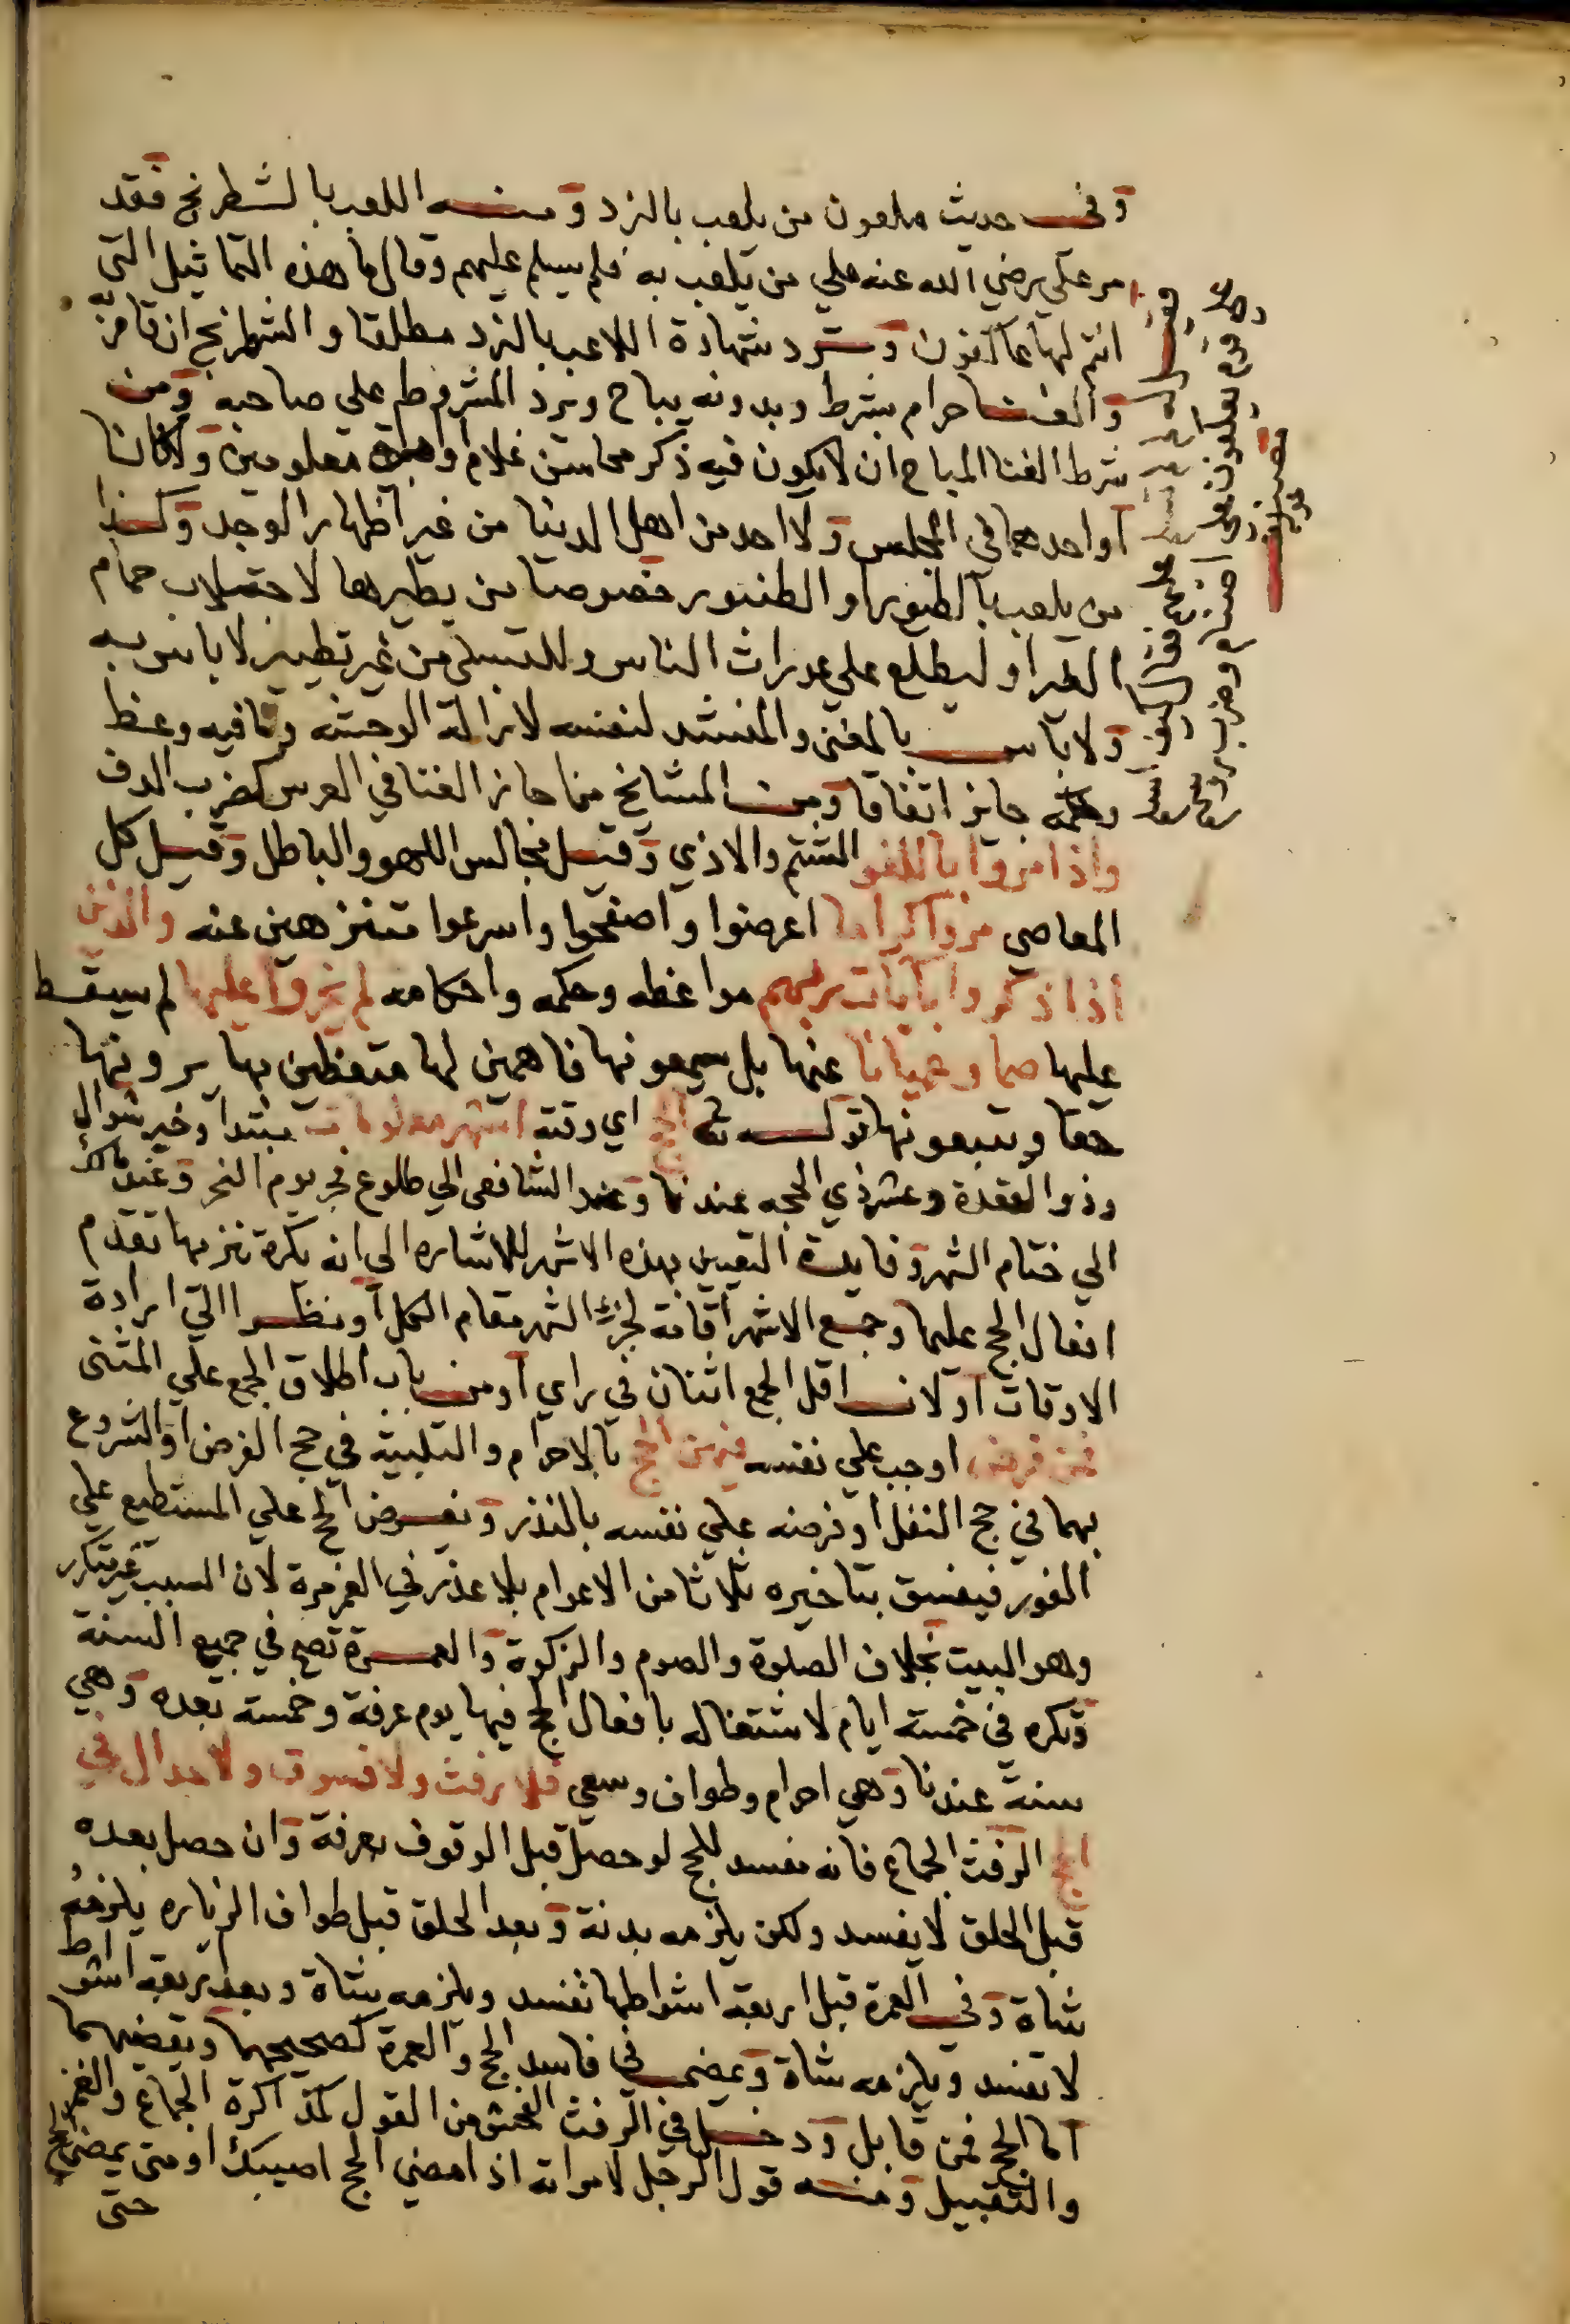 وفي حديث ملعون من يلعب بالنرد ومنه اللعب بالشطرنج فقد
مر علي رضي الله عنه علي من يلعب به فلم يسلم عليهم وقال ما هذه التماثيل التي
انتم لها عاكفون وترد شهادة اللاعب بالنرد مطلقا والشطرنج ان قامر به
والغنا حرام بشرط وبدونه يباح ويرد المشروط علي صاحبه ومن
شرط الغنا المباح ان لا يكون فيه ذكر محاسن غلام وامراة معلومين ولا كانا
او احدهما في المجلس ولا احد من اهل الدنيا من غير اظهار الوجد وكذا
من يلعب بالطيور او الطنبور خصوصا من يطيرها لاجتلاب حمام
الغير او ليطلع علي عورات الناس وللتسلي من غير تطيير لا باس به
ولا باس بالمغني والمنشد لنفسه لازالة الوحشة وما فيه وعظ
وحكمة جايز اتفاقا ومن المشائخ من اجاز الغنا في العرس كضرب الدف
واذا مروا باللغو الشتم والاذي وقيل مجالس اللهو والباطل وقيل كل
المعاصي مروا كراما اعرضوا واصفحوا واسرعوا متنزهين عنه والذين
اذا ذكروا بآيات ربهم مواعظه وحكمه واحكامه لم يخروا عليها لم يسقط
عليها صما وعميانا عنها بل يسمعونها فاهمين لها متعظين بها يرونها
حقا ويتبعونها قوله تع الحج اي وقته اشهر معلومات مبتدا وخبر شوال
وذو القعدة وعشر ذي الحجه عندنا وعند الشافعي الي طلوع فجر يوم النحر وعند مالك
الي ختام الشهر وفايدة التعيين بهذه الاشهر للاشاره الي انه يكره تنزيها تقدم
افعال الحج عليها وجمع الاشهر اقامة لجزء الشهر مقام الكل او نظرا الي ارادة
الاوقات او لان اقل الجمع اثنان في راي او من باب اطلاق الجمع علي المثني
فمن فرض اوجب علي نفسه فيهن الحج بالاحرام والتلبية في حج الفرض او الشروع
بهما في حج النفل او فرضه علي نفسه بالنذر ويفرض الحج علي المستطيع علي
الفور فيفسق بتاخيره ثلاثا من الاعوام بلا عذر في العمر مرة لان السبب غير متكرر
وهو البيت بخلاف الصلوة والصوم والزكوة والعمرة تصح في جميع السنة
وتكره في خمسة ايام لاشتغاله بافعال الحج فيها يوم عرفة وخمسة بعده وهي
سنة عندنا وهي احرام وطواف وسعي فلا رفث ولا فسوق ولا جدال في
الحج الرفث الجماع فانه مفسد للحج لو حصل قبل الوقوف بعرفة وان حصل بعده
قبل الحلق لا يفسد ولكن يلزمه بدنة وبعد الحلق قبل طواف الزياره يلزمه
شاة وفي العمرة قبل اربعة اشواطها تفسد ويلزمه شاة وبعد اربعة اشواط
لا تفسد ويلزمه شاة ويمضي في فاسد الحج والعمرة كصحيحهما ويقضيهما
اما الحج فمن قابل ودخل في الرفث الفحش من القول كمذاكرة الجماع والغمز
والتقبيل ومنه قول الرجل لامراته اذا مضي الحج اصيبك او متي يمضي الحج
حتي